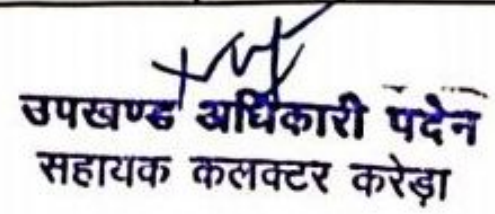 उपखण्ड अधिकारी पदेन
सहायक कलक्टर करेड़ा